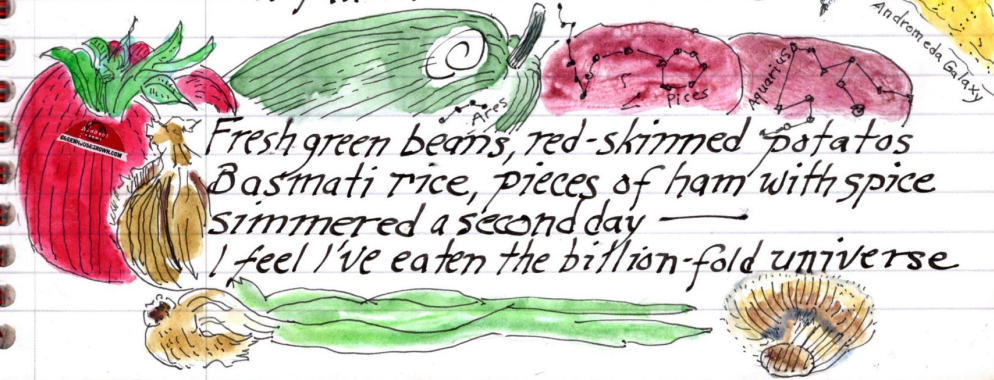 Andromeda Galaxy
Ares
Pices
Aquarius
Fresh green beans, red-skinned potatos
Basmati rice, pieces of ham with spice
simmered a second day —
I feel I've eaten the billion-fold universe